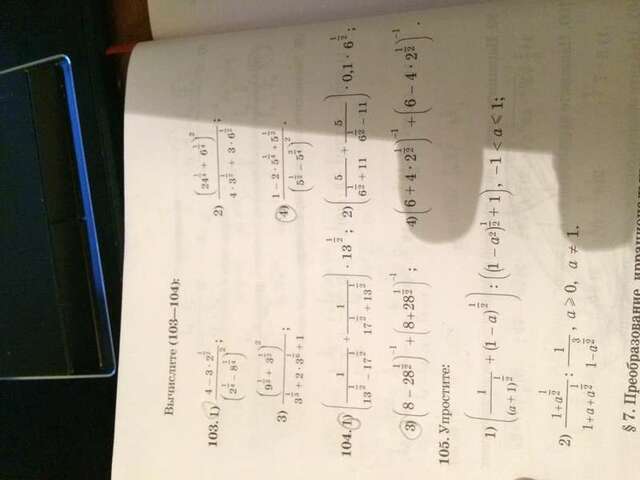 Вычислите (103—104):
103. 1) \frac{4-3\cdot2^{\frac{1}{2}}}{\left(2^{\frac{1}{4}}-8^{\frac{1}{4}}\right)^2}; 2) \frac{\left(24^{\frac{1}{4}}+6^{\frac{1}{4}}\right)^2}{4\cdot3^{\frac{1}{2}}+3\cdot6^{\frac{1}{2}}};
3) \frac{\left(9^{\frac{1}{3}}+3^{\frac{1}{3}}\right)^2}{3^{\frac{1}{3}}+2\cdot3^{\frac{1}{6}}+1}; 4) \frac{1-2\cdot5^{\frac{1}{4}}+5^{\frac{1}{2}}}{\left(5^{\frac{1}{2}}-5^{\frac{3}{4}}\right)^2}.
104. 1) \left(\frac{1}{13^{\frac{1}{2}}-17^{\frac{1}{2}}}+\frac{1}{17^{\frac{1}{2}}+13^{\frac{1}{2}}}\right)\cdot13^{\frac{1}{2}}; 2) \left(\frac{5}{6^{\frac{1}{2}}+11}+\frac{5}{6^{\frac{1}{2}}-11}\right)\cdot0,1\cdot6^{\frac{1}{2}};
3) \left(8-28^{\frac{1}{2}}\right)^{-1}+\left(8+28^{\frac{1}{2}}\right)^{-1}; 4) \left(6+4\cdot2^{\frac{1}{2}}\right)^{-1}+\left(6-4\cdot2^{\frac{1}{2}}\right)^{-1}.
105. Упростите:
1) \left(\frac{1}{(a+1)^{\frac{1}{2}}}+(1-a)^{\frac{1}{2}}\right):\left((1-a^2)^{\frac{1}{2}}+1\right), -1<a<1;
2) \frac{1+a^{\frac{1}{2}}}{1+a+a^{\frac{1}{2}}}:\frac{1}{1-a^{\frac{3}{2}}}, a⩾0, a≠1.
§ 7. Преобразование